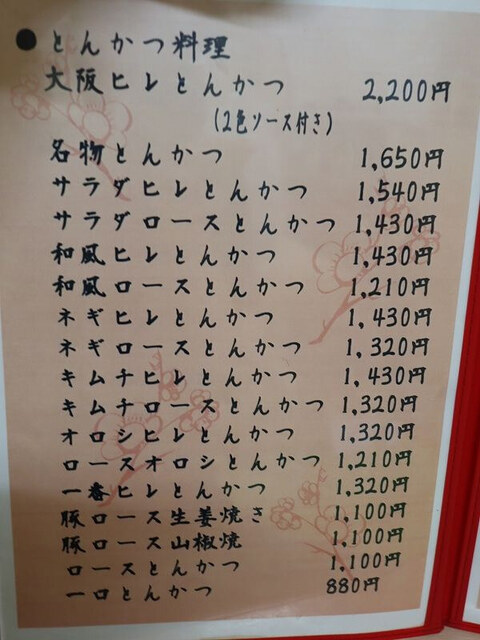 ●とんかつ料理
大阪ヒレとんかつ 2,200円
(2色ソース付き)
名物とんかつ 1,650円
サラダヒレとんかつ 1,540円
サラダロースとんかつ 1,430円
和風ヒレとんかつ 1,430円
和風ロースとんかつ 1,210円
ネギヒレとんかつ 1,430円
ネギロースとんかつ 1,320円
キムチヒレとんかつ 1,430円
キムチロースとんかつ 1,320円
オロシヒレとんかつ 1,320円
ロースオロシとんかつ 1,210円
一番ヒレとんかつ 1,320円
豚ロース生姜焼き 1,100円
豚ロース山椒焼 1,100円
ロースとんかつ 1,100円
一口とんかつ 880円